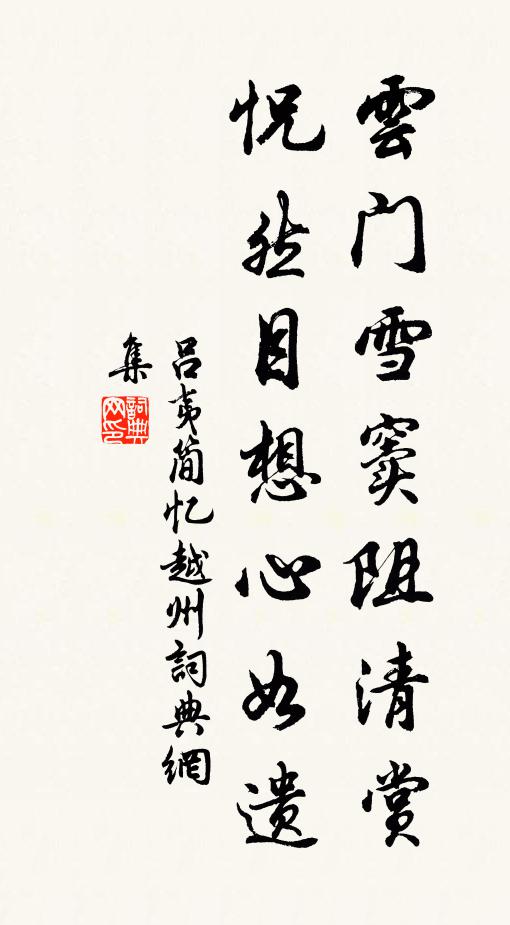 雲门雪窦阻清赏
怳然目想心如遗
吕夷简忆越州詞典網
集
詞典网印